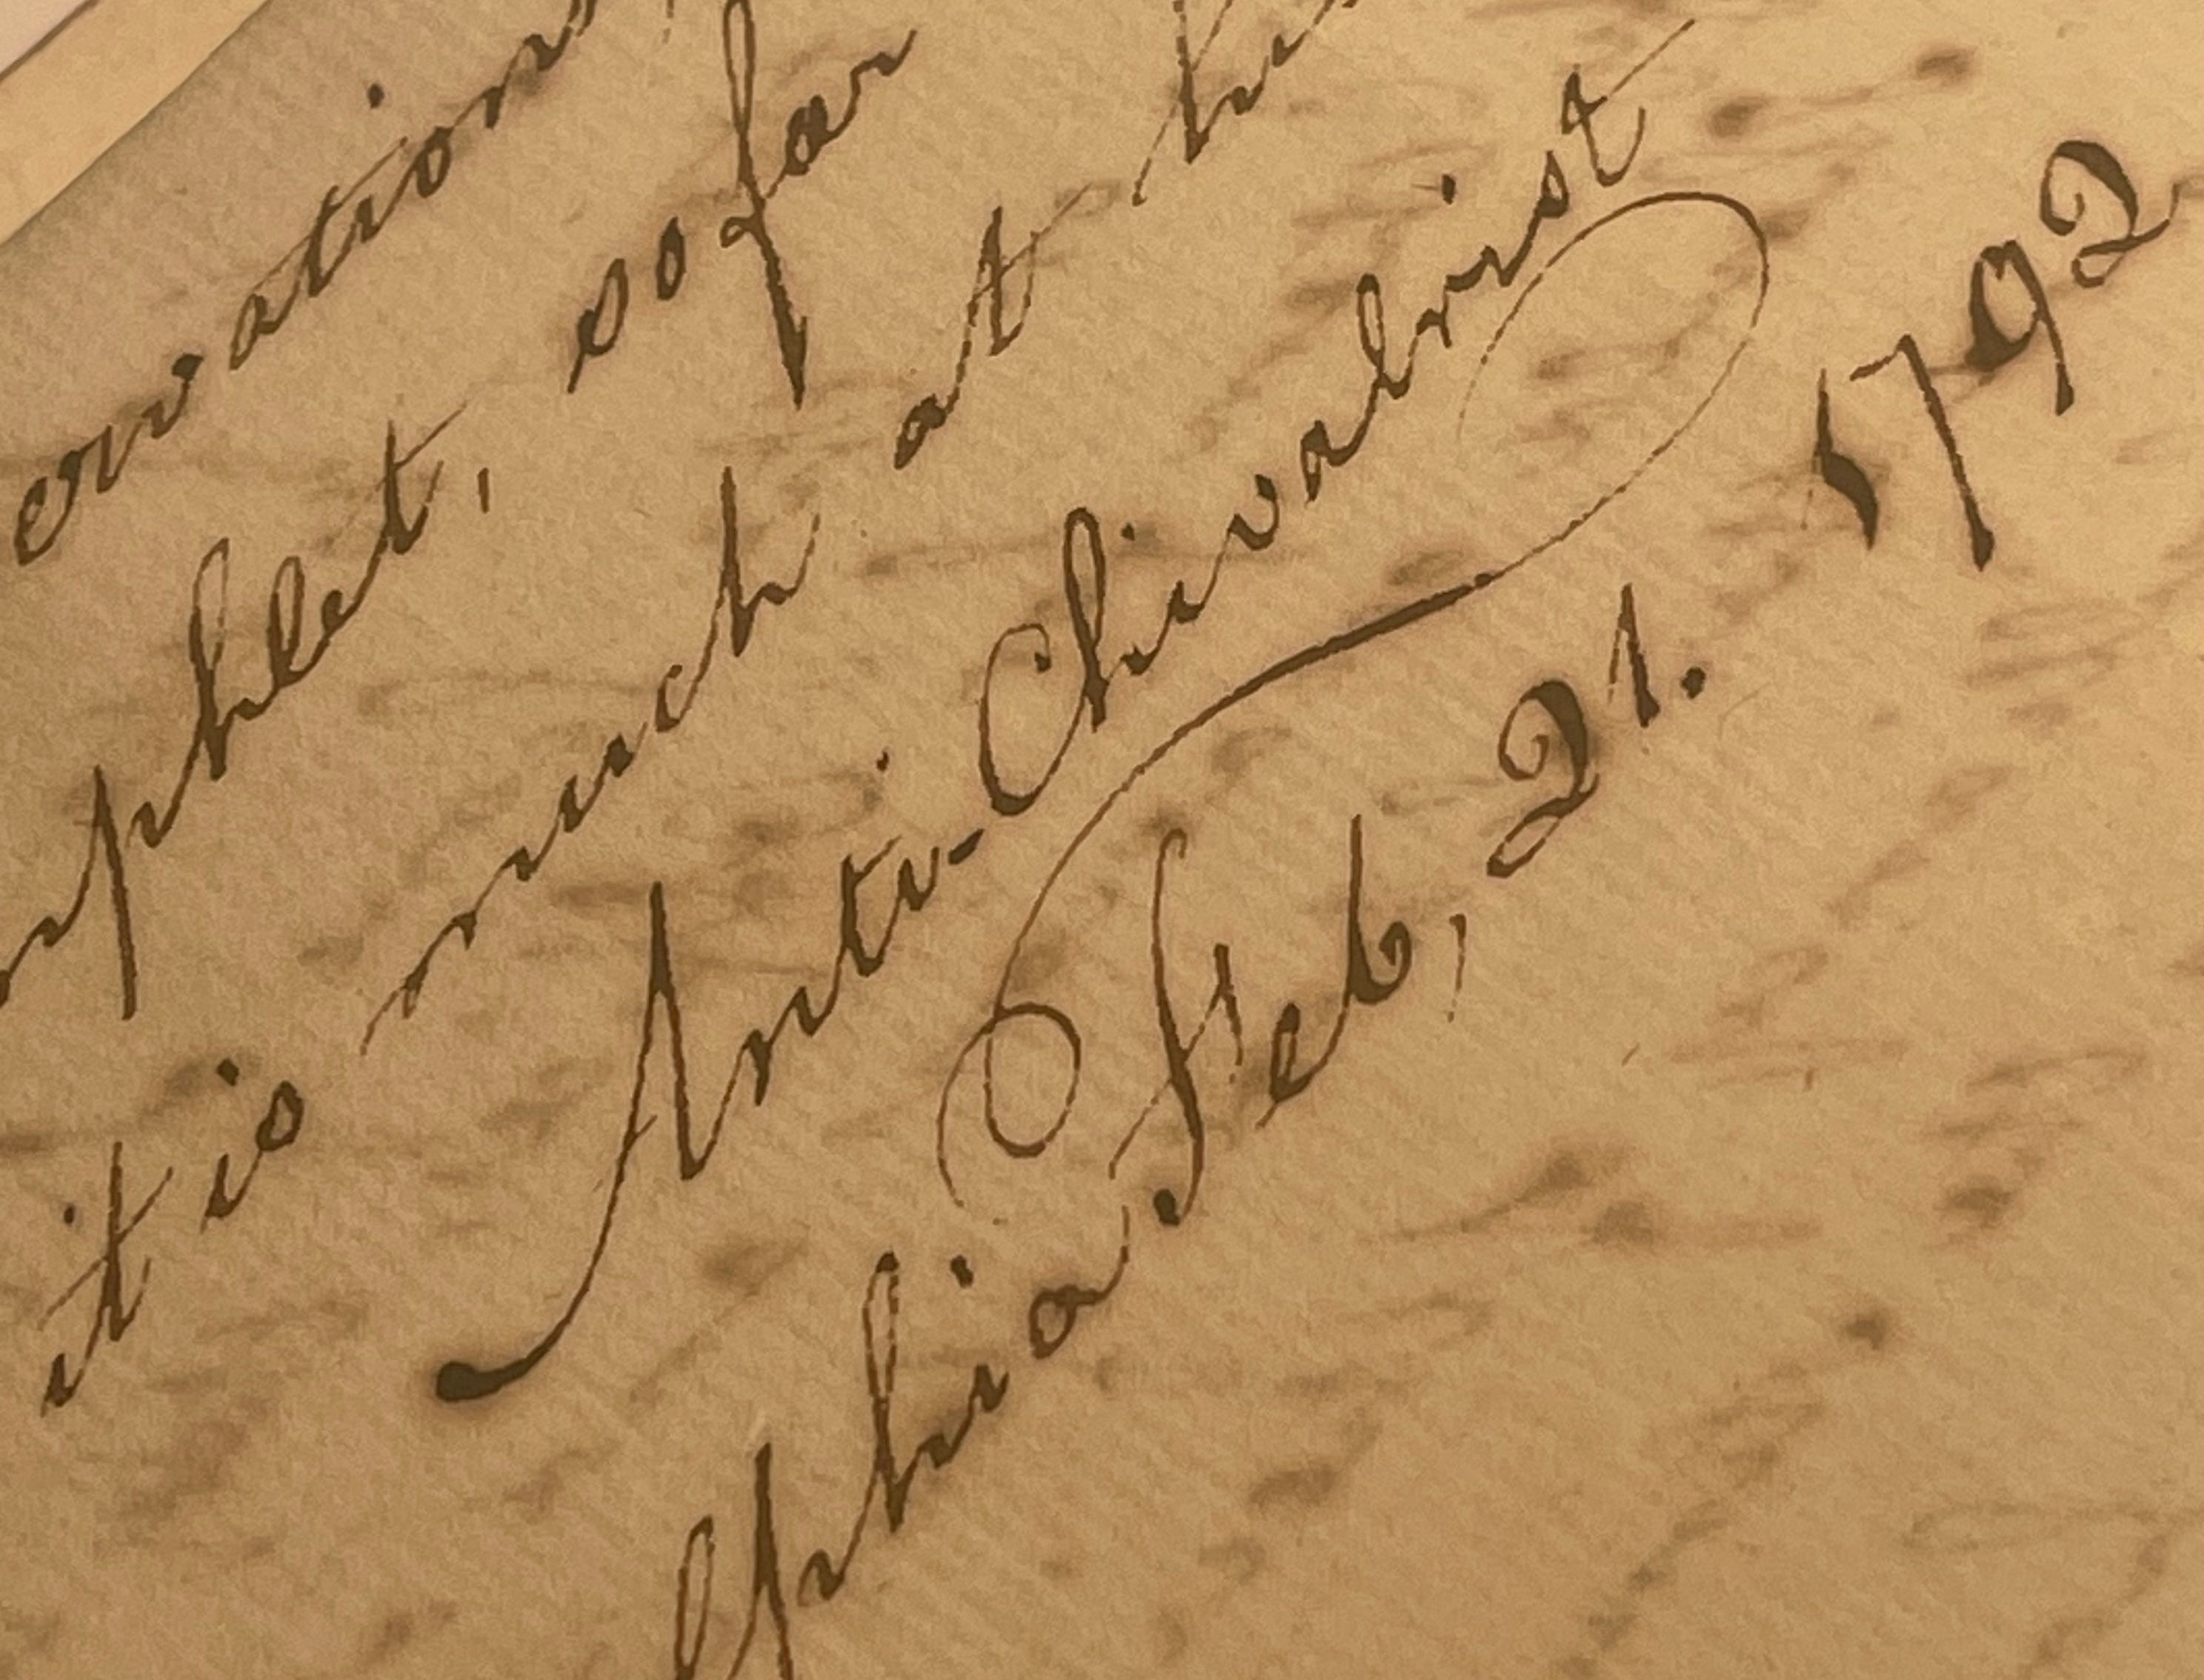 ervation
phlet, so far
it is much at
Anti-Chivalrist
lphia, Feb, 21. 1792